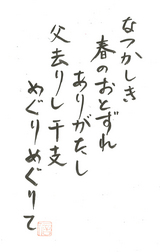 なつかしき
春のおとずれ
ありがたし
父去りし干支
めぐりめぐりて